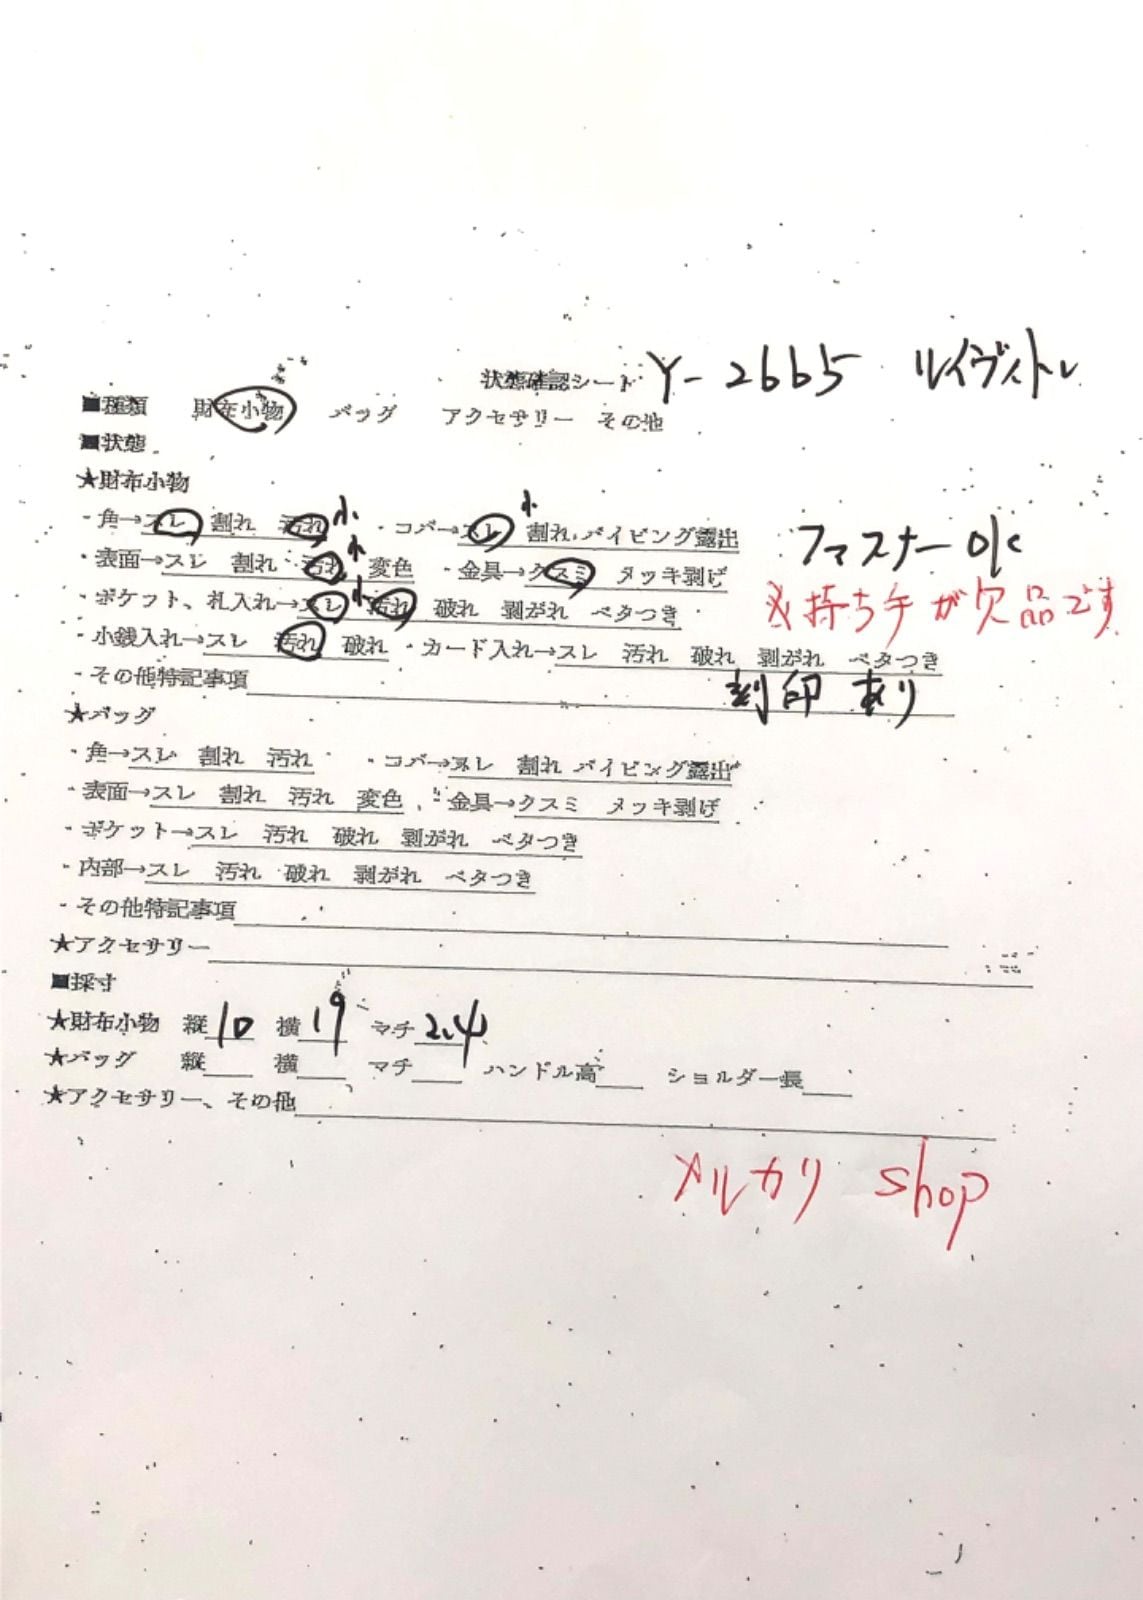 状態確認シート Y-2665 ルイヴィトン
■種類 財布小物 バッグ アクセサリー その他
■状態
★財布小物
・角→スレ 割れ 汚れ 小 ・コバ→スレ 小 割れ パイピング露出
ファスナーOK
・表面→スレ 割れ 汚れ 小 変色 ・金具→クスミ メッキ剥げ
※持ち手が欠品です
・ポケット、札入れ→スレ 小 汚れ 破れ 剥がれ ベタつき
・小銭入れ→スレ 汚れ 破れ ・カード入れ→スレ 汚れ 破れ 剥がれ ベタつき
・その他特記事項 刻印あり
★バッグ
・角→スレ 割れ 汚れ ・コバ→スレ 割れ パイピング露出
・表面→スレ 割れ 汚れ 変色 ・金具→クスミ メッキ剥げ
・ポケット→スレ 汚れ 破れ 剥がれ ベタつき
・内部→スレ 汚れ 破れ 剥がれ ベタつき
・その他特記事項
★アクセサリー
■採寸
★財布小物 縦10 横19 マチ2.4
★バッグ 縦 横 マチ ハンドル高 ショルダー長
★アクセサリー、その他
メルカリ shop